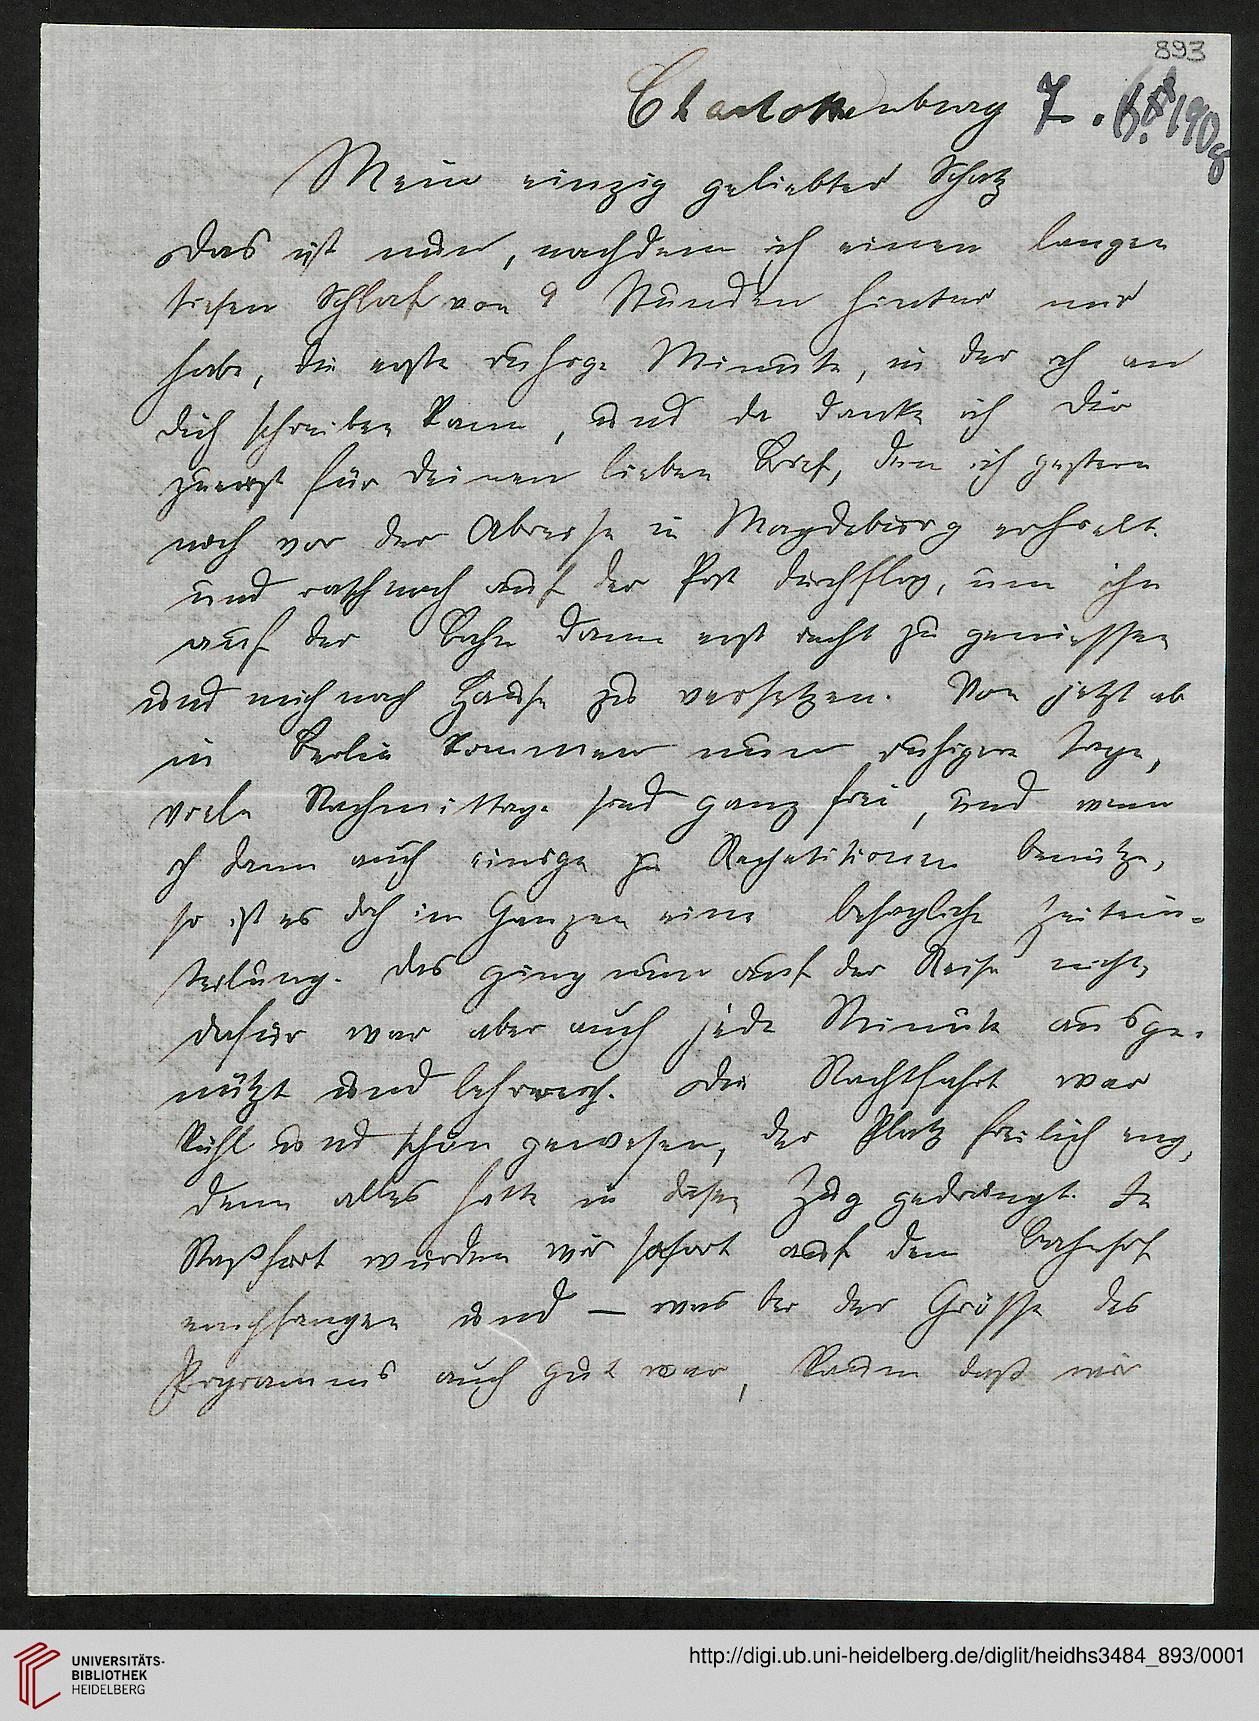 893
Charlottenburg 7. 1908
Mein einzig geliebter Schatz
Das ist nun, nachdem ich einen langen
tiefen Schlaf von 9 Stunden hinter mir
habe, die erste ruhige Minute, in der ich an
Dich schreiben kann, und da danke ich Dir
zuerst für Deinen lieben Brief, den ich gestern
noch vor der Abreise in Magdeburg erhielt
und rasch noch auf der Post durchflog, um ihn
auf der Bahn dann erst recht zu geniessen
und mich nach Hause zu versetzen. Von jetzt ab
in Berlin kommen nun ruhigere Tage,
viele Nachmittage sind ganz frei, und wenn
ich dann auch einige zu Repetitionen benütze,
so ist es doch im Ganzen eine behagliche Zeitein-
teilung. Das ging nun auf der Reise nicht,
dafür war aber auch jede Minute ausge-
nützt und lehrreich. Die Nachtfahrt war
kühl und schön gewesen, der Platz freilich eng,
denn alles hatte in diesen Zug gedrängt. In
Staßfurt wurden wir sofort auf dem Bahnhof
empfangen und – was bei der Grösse des
Programms auch gut war, kaum daß wir
UNIVERSITÄTS-
BIBLIOTHEK
HEIDELBERG
http://digi.ub.uni-heidelberg.de/diglit/heidhs3484_893/0001